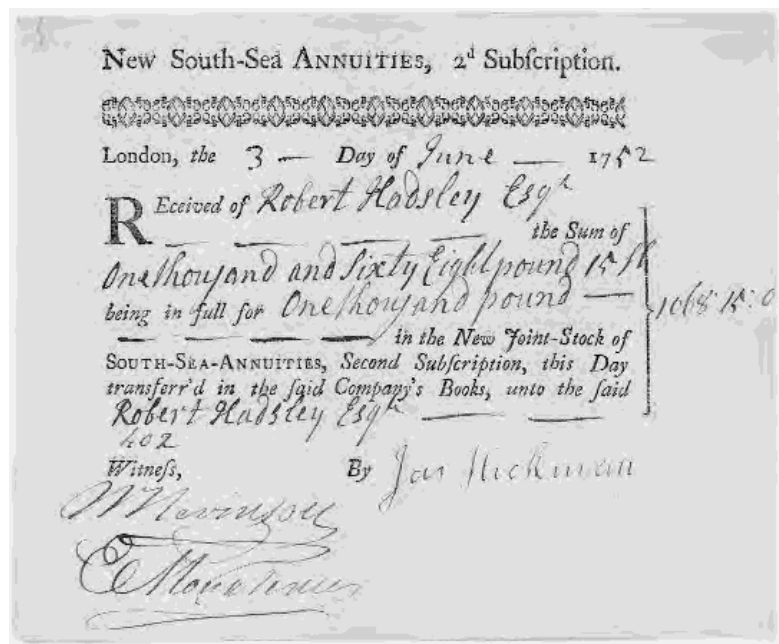 New South-Sea ANNUITIES, 2d Subſcription.
London, the 3 — Day of June — 1752
REceived of Robert Hadsley Esqr
— — — — the Sum of
One thouſand and Sixty Eight pound 15 ſh
being in full for One thouſand pound —
1068:15:0
— — — — in the New Joint-Stock of
SOUTH-SEA-ANNUITIES, Second Subſcription, this Day
tranſferr'd in the ſaid Company's Books, unto the ſaid
Robert Hadsley Esqr — —
402
Witneſs, By Jas Hickman